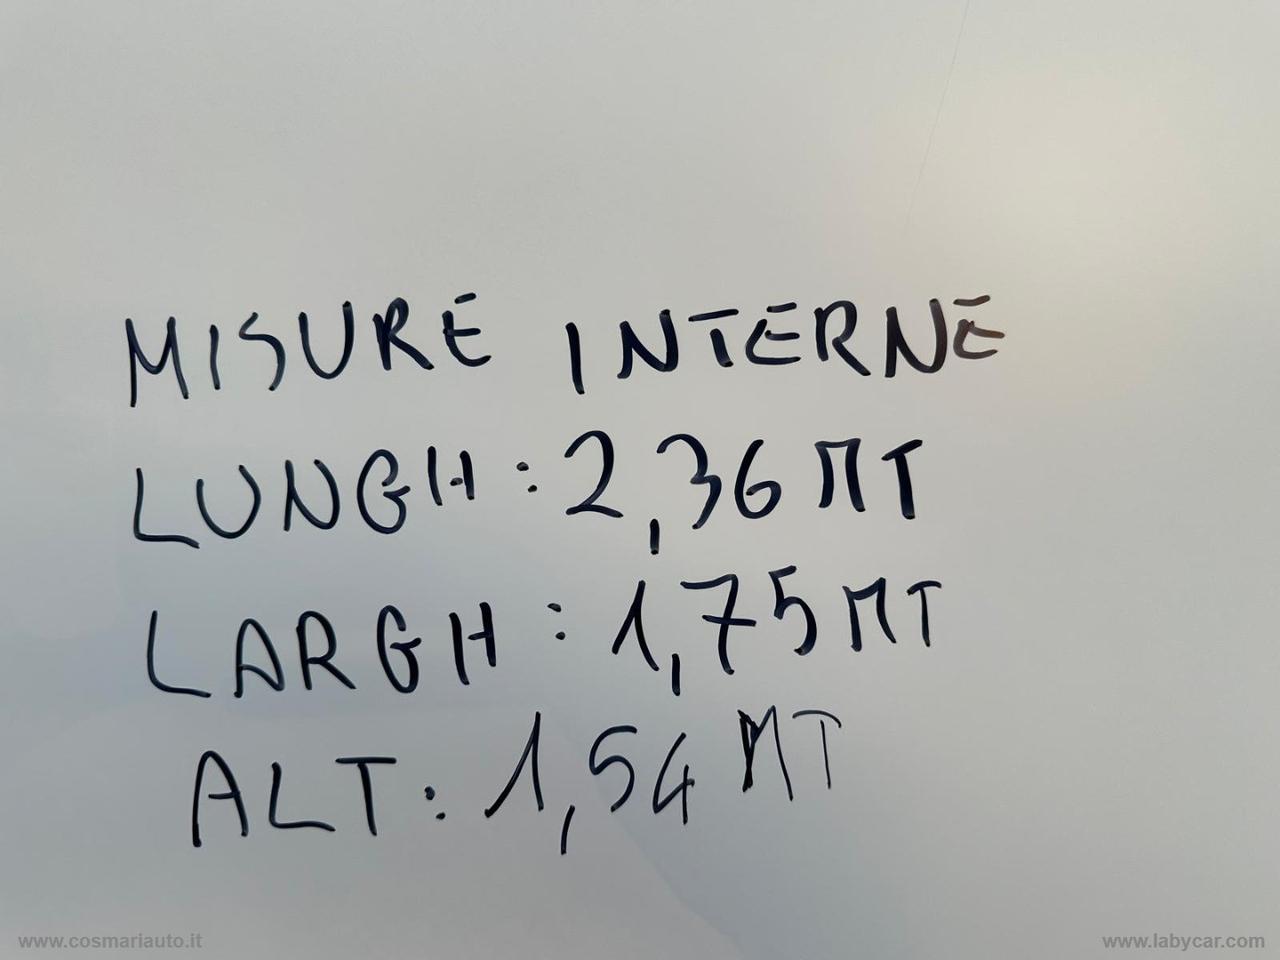 MISURE INTERNE
LUNGH: 2,36 MT
LARGH: 1,75 MT
ALT: 1,54 MT
www.cosmariauto.it
www.labycar.com